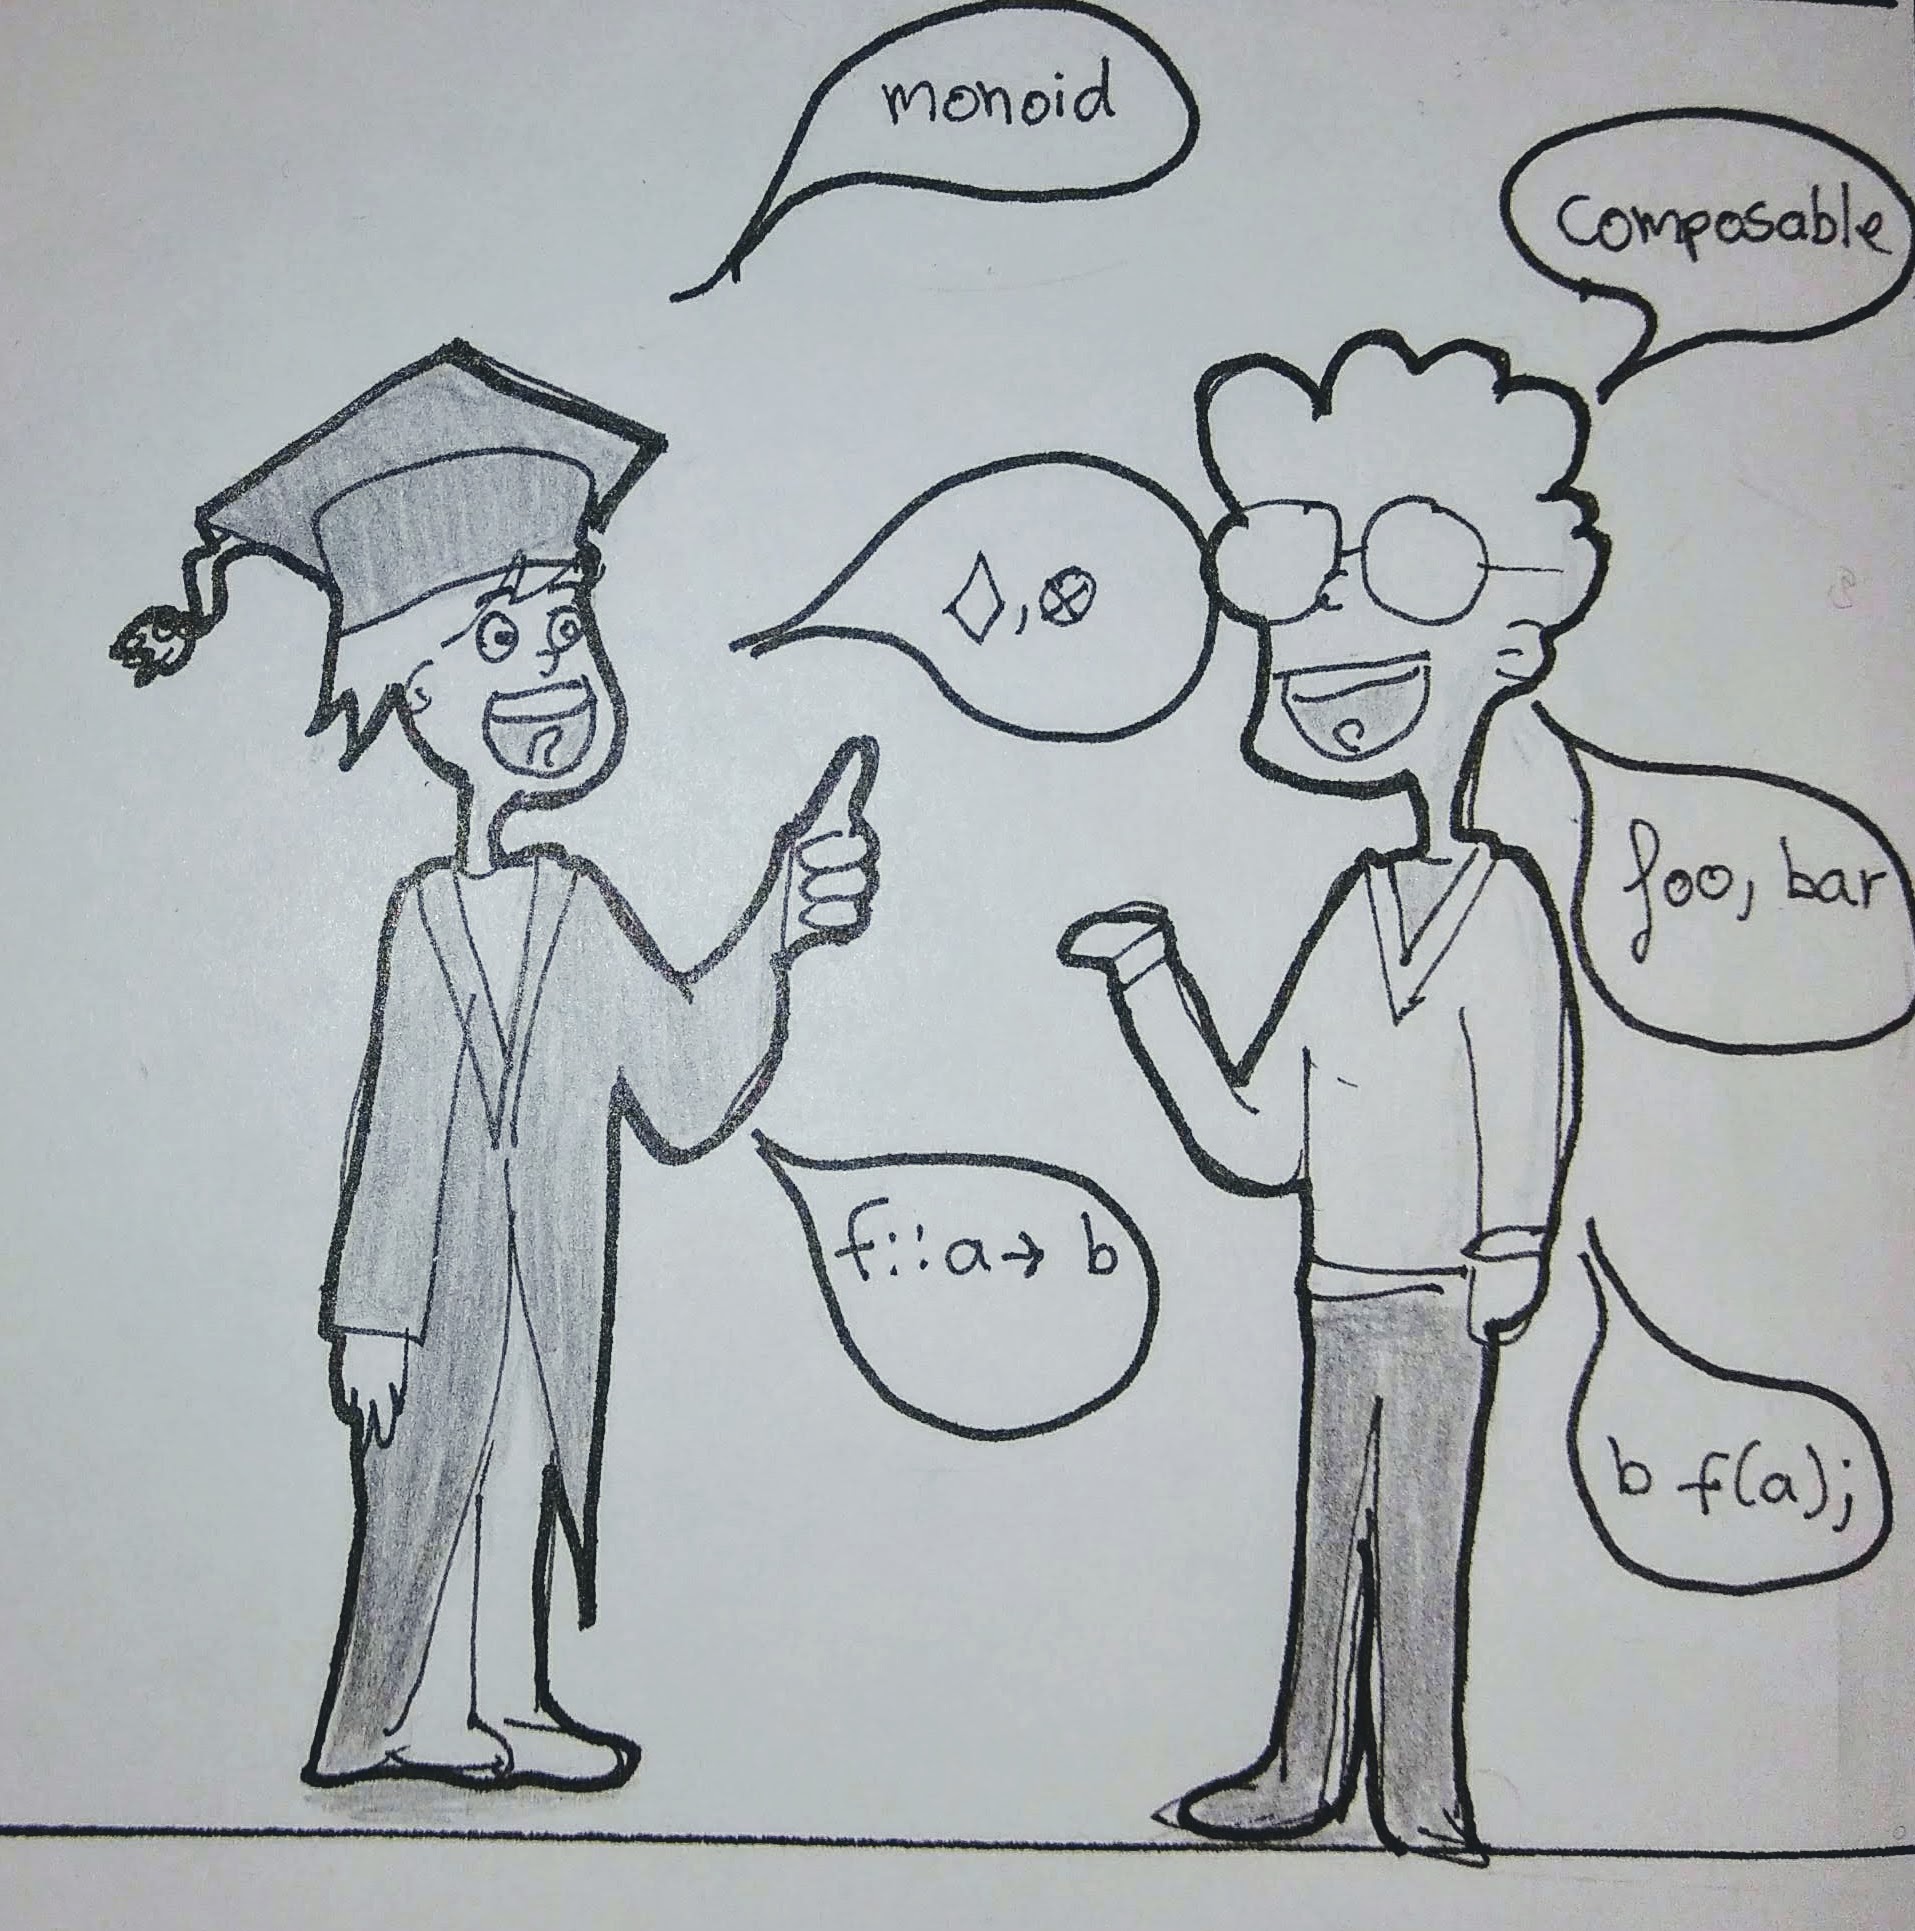 monoid
composable
◊, ⊗
foo, bar
f::a→ b
b f(a);